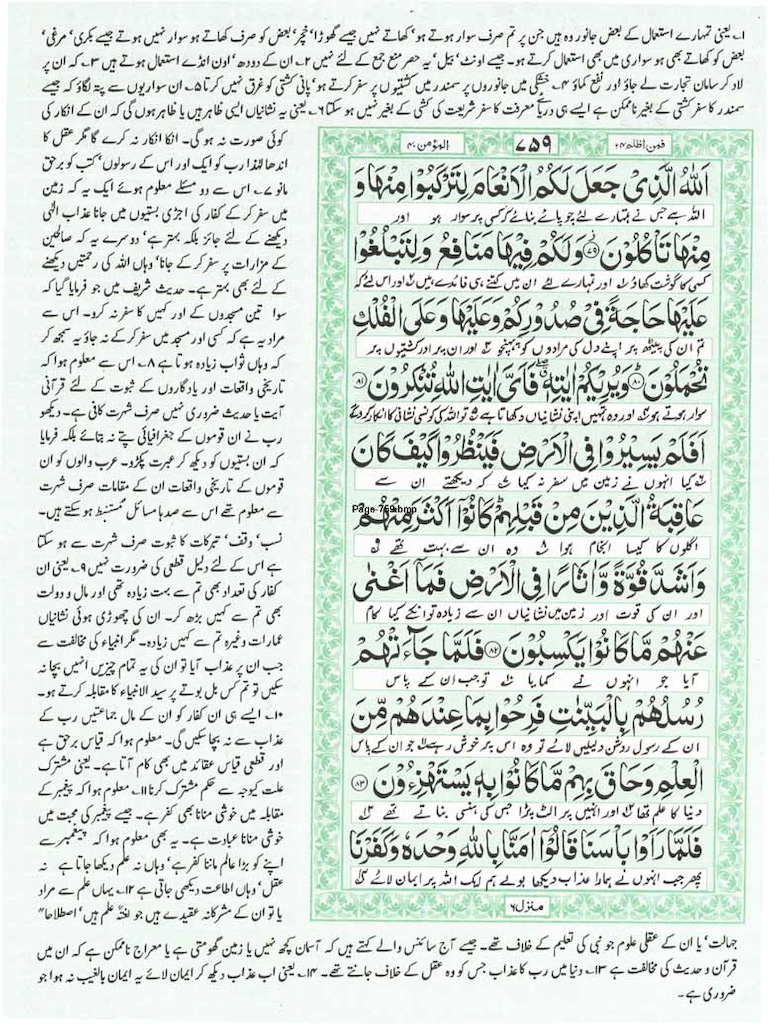 ۱۔ یعنی تمہارے استعمال کے بعض جانور وہ ہیں جن پر تم صرف سوار ہوتے ہو' کھاتے نہیں جیسے گھوڑا' خچر' بعض کو صرف کھاتے ہو سوار نہیں ہوتے جیسے بکری' مرغی'
بعض کو کھاتے بھی ہو سواری میں بھی استعمال کرتے ہو۔ جیسے اونٹ' بیل' یہ حصر منع جمع کے لئے نہیں ۲۔ ان کے دودھ' اون انڈے استعمال ہوتے ہیں ۳۔ کہ ان پر
لاد کر سامان تجارت لے جاؤ اور نفع کماؤ ۴۔ خشکی میں جانوروں پر سمندر میں کشتیوں پر سفر کرتے ہو' پانی کشتی کو غرق نہیں کرتا ۵۔ ان سواریوں سے پتہ لگاؤ کہ جیسے
سمندر کا سفر کشتی کے بغیر ناممکن ہے ایسے ہی دریائے معرفت کا سفر شریعت کی کشتی کے بغیر نہیں ہو سکتا ۶۔ یعنی یہ نشانیاں ایسی ظاہر ہیں یا ظاہر ہوں گی کہ ان کے انکار کی
کوئی صورت نہ ہو گی۔ انکا انکار نہ کرے گا مگر عقل کا
اندھا لہٰذا رب کو ایک اور اس کے رسولوں' کتب کو برحق
مانو ۷۔ اس سے دو مسئلے معلوم ہوئے ایک یہ کہ زمین
میں سفر کر کے کفار کی اجڑی بستیوں میں جانا عذاب الٰہی
دیکھنے کے لئے جائز بلکہ بہتر ہے' دوسرے یہ کہ صالحین
کے مزارات پر سفر کر کے جانا' وہاں اللہ کی رحمتیں دیکھنے
کے لئے بھی بہتر ہے۔ حدیث شریف میں جو فرمایا گیا کہ
سوا تین مسجدوں کے اور کہیں کا سفر نہ کرو۔ اس سے
مراد یہ ہے کہ کسی اور مسجد میں سفر کر کے نہ جاؤ یہ سمجھ کر
کہ وہاں ثواب زیادہ ہوتا ہے ۸۔ اس سے معلوم ہوا کہ
تاریخی واقعات اور یادگاروں کے ثبوت کے لئے قرآنی
آیت یا حدیث ضروری نہیں صرف شہرت کافی ہے۔ دیکھو
رب نے ان قوموں کے جغرافیائی پتے نہ بتائے بلکہ فرمایا
کہ ان بستیوں کو دیکھ کر عبرت پکڑو۔ عرب والوں کو ان
قوموں کے تاریخی واقعات ان کے مقامات صرف شہرت
سے معلوم تھے اس سے صدہا مسائل مستنبط ہو سکتے ہیں۔
نسب' وقف' تبرکات کا ثبوت صرف شہرت سے ہو سکتا
ہے اس کے لئے دلیل قطعی کی ضرورت نہیں ۹۔ یعنی ان
کفار کی تعداد بھی تم سے بہت زیادہ تھی اور مال و دولت
بھی تم سے کہیں بڑھ کر۔ ان کی چھوڑی ہوئی نشانیاں
عمارات وغیرہ تم سے کہیں زیادہ۔ مگر انبیاء کی مخالفت سے
جب ان پر عذاب آیا تو ان کی یہ تمام چیزیں انہیں بچا نہ
سکیں تو تم کس بل بوتے پر سید الانبیاء کا مقابلہ کرتے ہو۔
۱۰۔ ایسے ہی ان کفار کو ان کے مال جماعتیں رب کے
عذاب سے نہ بچا سکیں گی۔ معلوم ہوا کہ قیاس برحق ہے
اور قطعی قیاس عقائد میں بھی کام آتا ہے۔ یعنی مشترک
علت کیوجہ سے حکم مشترک کرنا ۱۱۔ معلوم ہوا کہ پیغمبر کے
مقابلہ میں خوشی منانا بھی کفر ہے۔ جیسے پیغمبر کی محبت میں
خوشی منانا عبادت ہے۔ یہ بھی معلوم ہوا کہ پیغمبر سے
اپنے کو بڑا عالم ماننا کفر ہے' وہاں نہ علم دیکھا جاتا ہے نہ
عقل' وہاں اطاعت دیکھی جاتی ہے ۱۲۔ یہاں علم سے مراد
یا تو ان کے مشرکانہ عقیدے ہیں جو لغتہً علم ہیں' اصطلاحاً
فمن اظلم ۲۴
۷۵۹
المؤمن ۴۰
اَللّٰهُ الَّذِیْ جَعَلَ لَكُمُ الْاَنْعَامَ لِتَرْكَبُوْا مِنْهَا وَ
اللہ ہے جس نے تمہارے لئے چوپائے بنائے کہ کسی پر سوار ہو اور
مِنْهَا تَاْكُلُوْنَ ﴿۷۹﴾ وَلَكُمْ فِیْهَا مَنَافِعُ وَلِتَبْلُغُوْا
کسی کا گوشت کھاؤ ۱ اور تمہارے لئے ان میں کتنے ہی فائدے ہیں ۲ اور اس لئے کہ
عَلَیْهَا حَاجَةً فِیْ صُدُوْرِكُمْ وَعَلَیْهَا وَعَلَی الْفُلْكِ
تم ان کی پیٹھ پر اپنے دل کی مرادوں کو پہنچو ۳ اور ان پر اور کشتیوں پر
تُحْمَلُوْنَ ﴿۸۰﴾ وَیُرِیْكُمْ اٰیٰتِهٖ فَاَیَّ اٰیٰتِ اللّٰهِ تُنْكِرُوْنَ ﴿۸۱﴾
سوار ہوتے ہو ۵ اور وہ تمہیں اپنی نشانیاں دکھاتا ہے تو اللہ کی کونسی نشانی کا انکار کروگے
اَفَلَمْ یَسِیْرُوْا فِی الْاَرْضِ فَیَنْظُرُوْا كَیْفَ كَانَ
۶ تو کیا انہوں نے زمین میں سفر نہ کیا ۷ کہ دیکھتے ان سے
عَاقِبَةُ الَّذِیْنَ مِنْ قَبْلِهِمْ كَانُوْۤا اَكْثَرَ مِنْهُمْ
Page-759.bmp
اگلوں کا کیسا انجام ہوا ۸ وہ ان سے بہت تھے ۹
وَاَشَدَّ قُوَّةً وَّاٰثَارًا فِی الْاَرْضِ فَمَاۤ اَغْنٰی
اور ان کی قوت اور زمین میں نشانیاں ان سے زیادہ تو انکے کیا کام
عَنْهُمْ مَّا كَانُوْا یَكْسِبُوْنَ ﴿۸۲﴾ فَلَمَّا جَآءَتْهُمْ
آیا جو انہوں نے کمایا ۱۰ تو جب ان کے پاس
رُسُلُهُمْ بِالْبَیِّنٰتِ فَرِحُوْا بِمَا عِنْدَهُمْ مِّنَ
ان کے رسول روشن دلیلیں لائے تو وہ اس پر خوش رہے ۱۱ جو ان کے پاس
الْعِلْمِ وَحَاقَ بِهِمْ مَّا كَانُوْا بِهٖ یَسْتَهْزِءُوْنَ ﴿۸۳﴾
دنیا کا علم تھا ۱۲ اور انہیں پر الٹ پڑا جس کی ہنسی بناتے تھے ۱۳
فَلَمَّا رَاَوْا بَاْسَنَا قَالُوْۤا اٰمَنَّا بِاللّٰهِ وَحْدَهٗ وَكَفَرْنَا
پھر جب انہوں نے ہمارا عذاب دیکھا بولے ہم ایک اللہ پر ایمان لائے ۱۴
منزل ۶
جہالت' یا ان کے عقلی علوم جو نبی کی تعلیم کے خلاف تھے۔ جیسے آج سائنس والے کہتے ہیں کہ آسمان کچھ نہیں یا زمین گھومتی ہے یا معراج ناممکن ہے کہ ان میں
قرآن و حدیث کی مخالفت ہے ۱۳۔ دنیا میں رب کا عذاب جس کو وہ عقل کے خلاف جانتے تھے۔ ۱۴۔ یعنی اب عذاب دیکھ کر ایمان لائے یہ ایمان بالغیب نہ ہوا جو
ضروری ہے۔